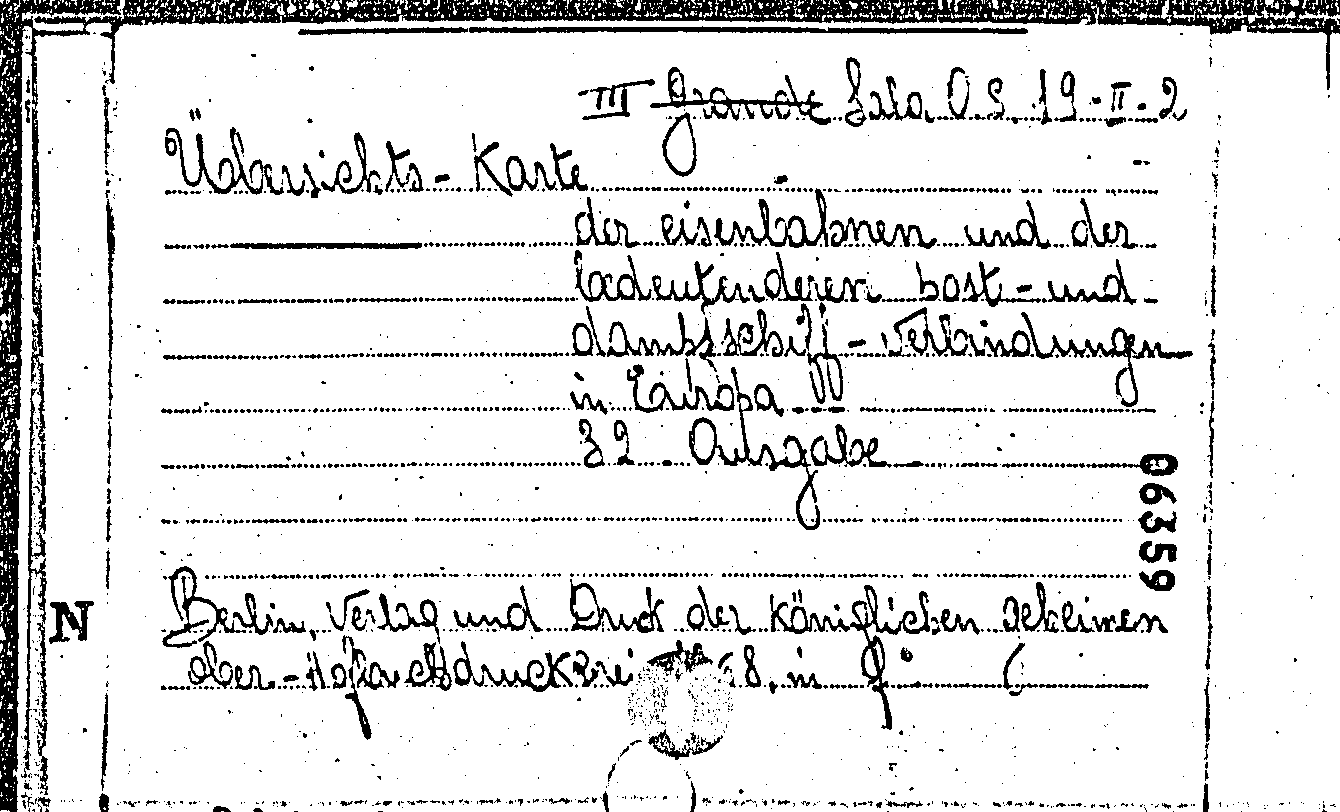 III Grande Sala O.S. 19-II-2
Übersichts-Karte
der eisenbahnen und der
bedeutenderen post-und
dampfschiff-Verbindungen
in Europa
32. Ausgabe
06359
N
Berlin, Verlag und Druck der Königlichen geheimen
ober-Hofbuchdruckerei 8, in f°